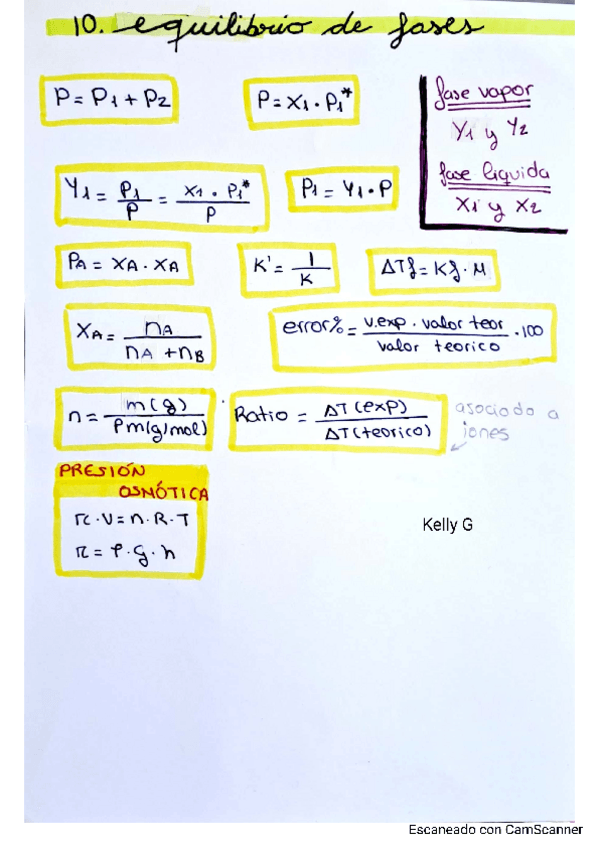 10. equilibrio de fases
P = P1 + P2
P = X1 · P1*
fase vapor
Y1 y Y2
fase liquida
X1 y X2
Y1 = P1/P = X1 · P1*/P
P1 = Y1 · P
PA = XA · XA
K' = 1/K
ΔTf = Kf · M
XA = nA/nA + nB
error% = v.exp · valor teor/valor teorico · 100
n = m(g)/Pm(g/mol)
Ratio = ΔT(exp)/ΔT(teorico)
asociado a
iones
PRESIÓN
OSMÓTICA
π · V = n · R · T
π = ρ · g · h
Kelly G
Escaneado con CamScanner